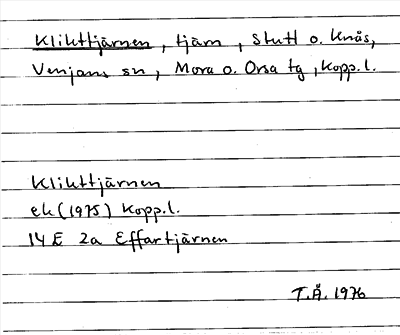 Klikttjärnen, tjärn, Stutl o. Knås,
Venjans sn, Mora o. Orsa tg, Kopp.l.
Klikttjärnen
ek (1975) Kopp.l.
14E 2a Effartjärnen
T.Å. 1976